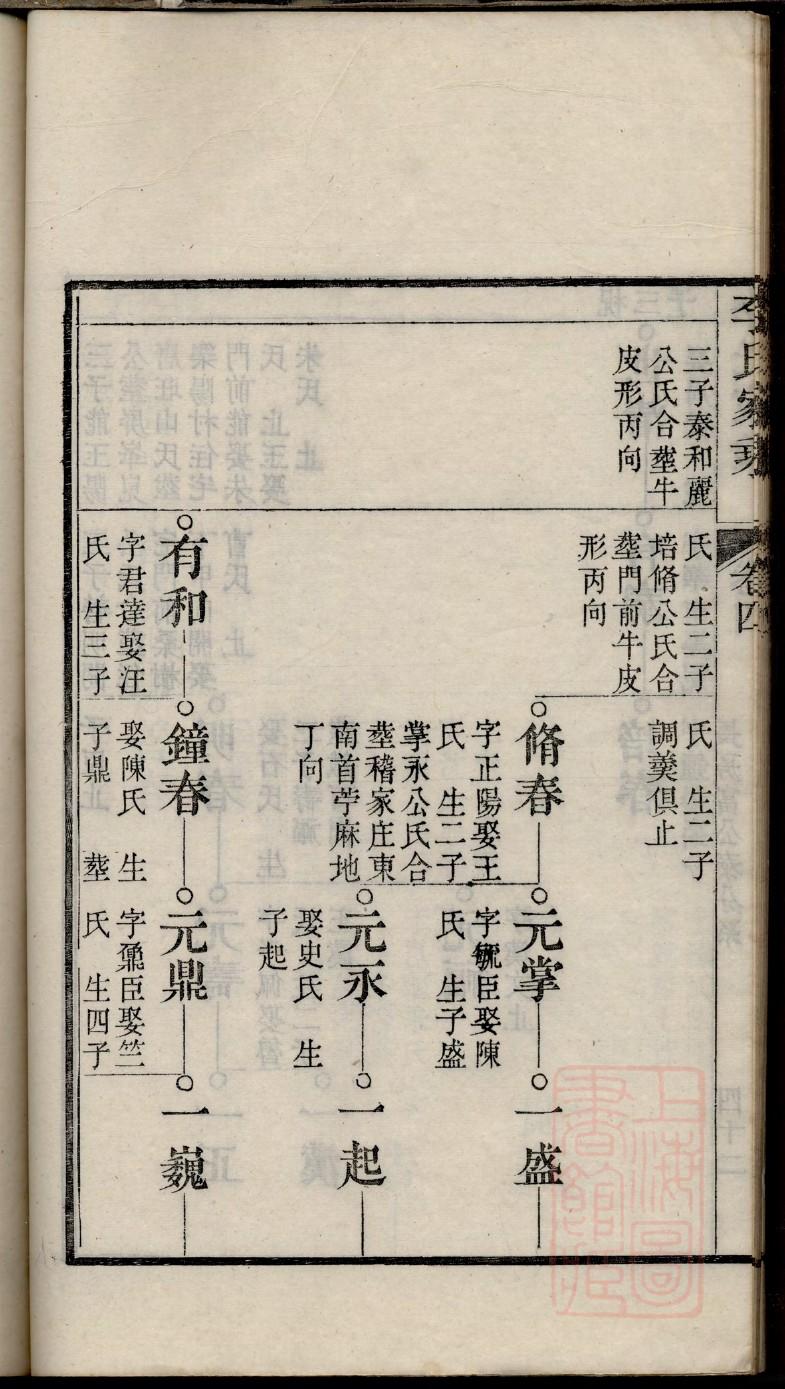 李氏家乘
卷四
三子泰和麗
公氏合塟牛
皮形丙向
氏 生二子
培脩公氏合
塟門前牛皮
形丙向
氏 生二子
調羹俱止
脩春
字正陽娶王
氏 生二子
掌永公氏合
塟稽家庄東
南首苧麻地
丁向
元掌
字毓臣娶陳
氏 生子盛
一盛
元永
娶史氏 生
子起
一起
有和
字君達娶汪
氏 生三子
鐘春
娶陳氏 生
子鼎 塟
元鼎
字鼐臣娶竺
氏 生四子
一巍
上海圖
書館藏